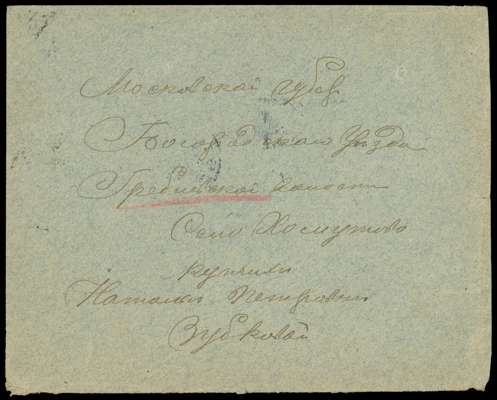 Московской губер
Богородскаго Уезда
Гребневской волости
Село Хомутово
купчихи
Натальи Петровны
Зубковой